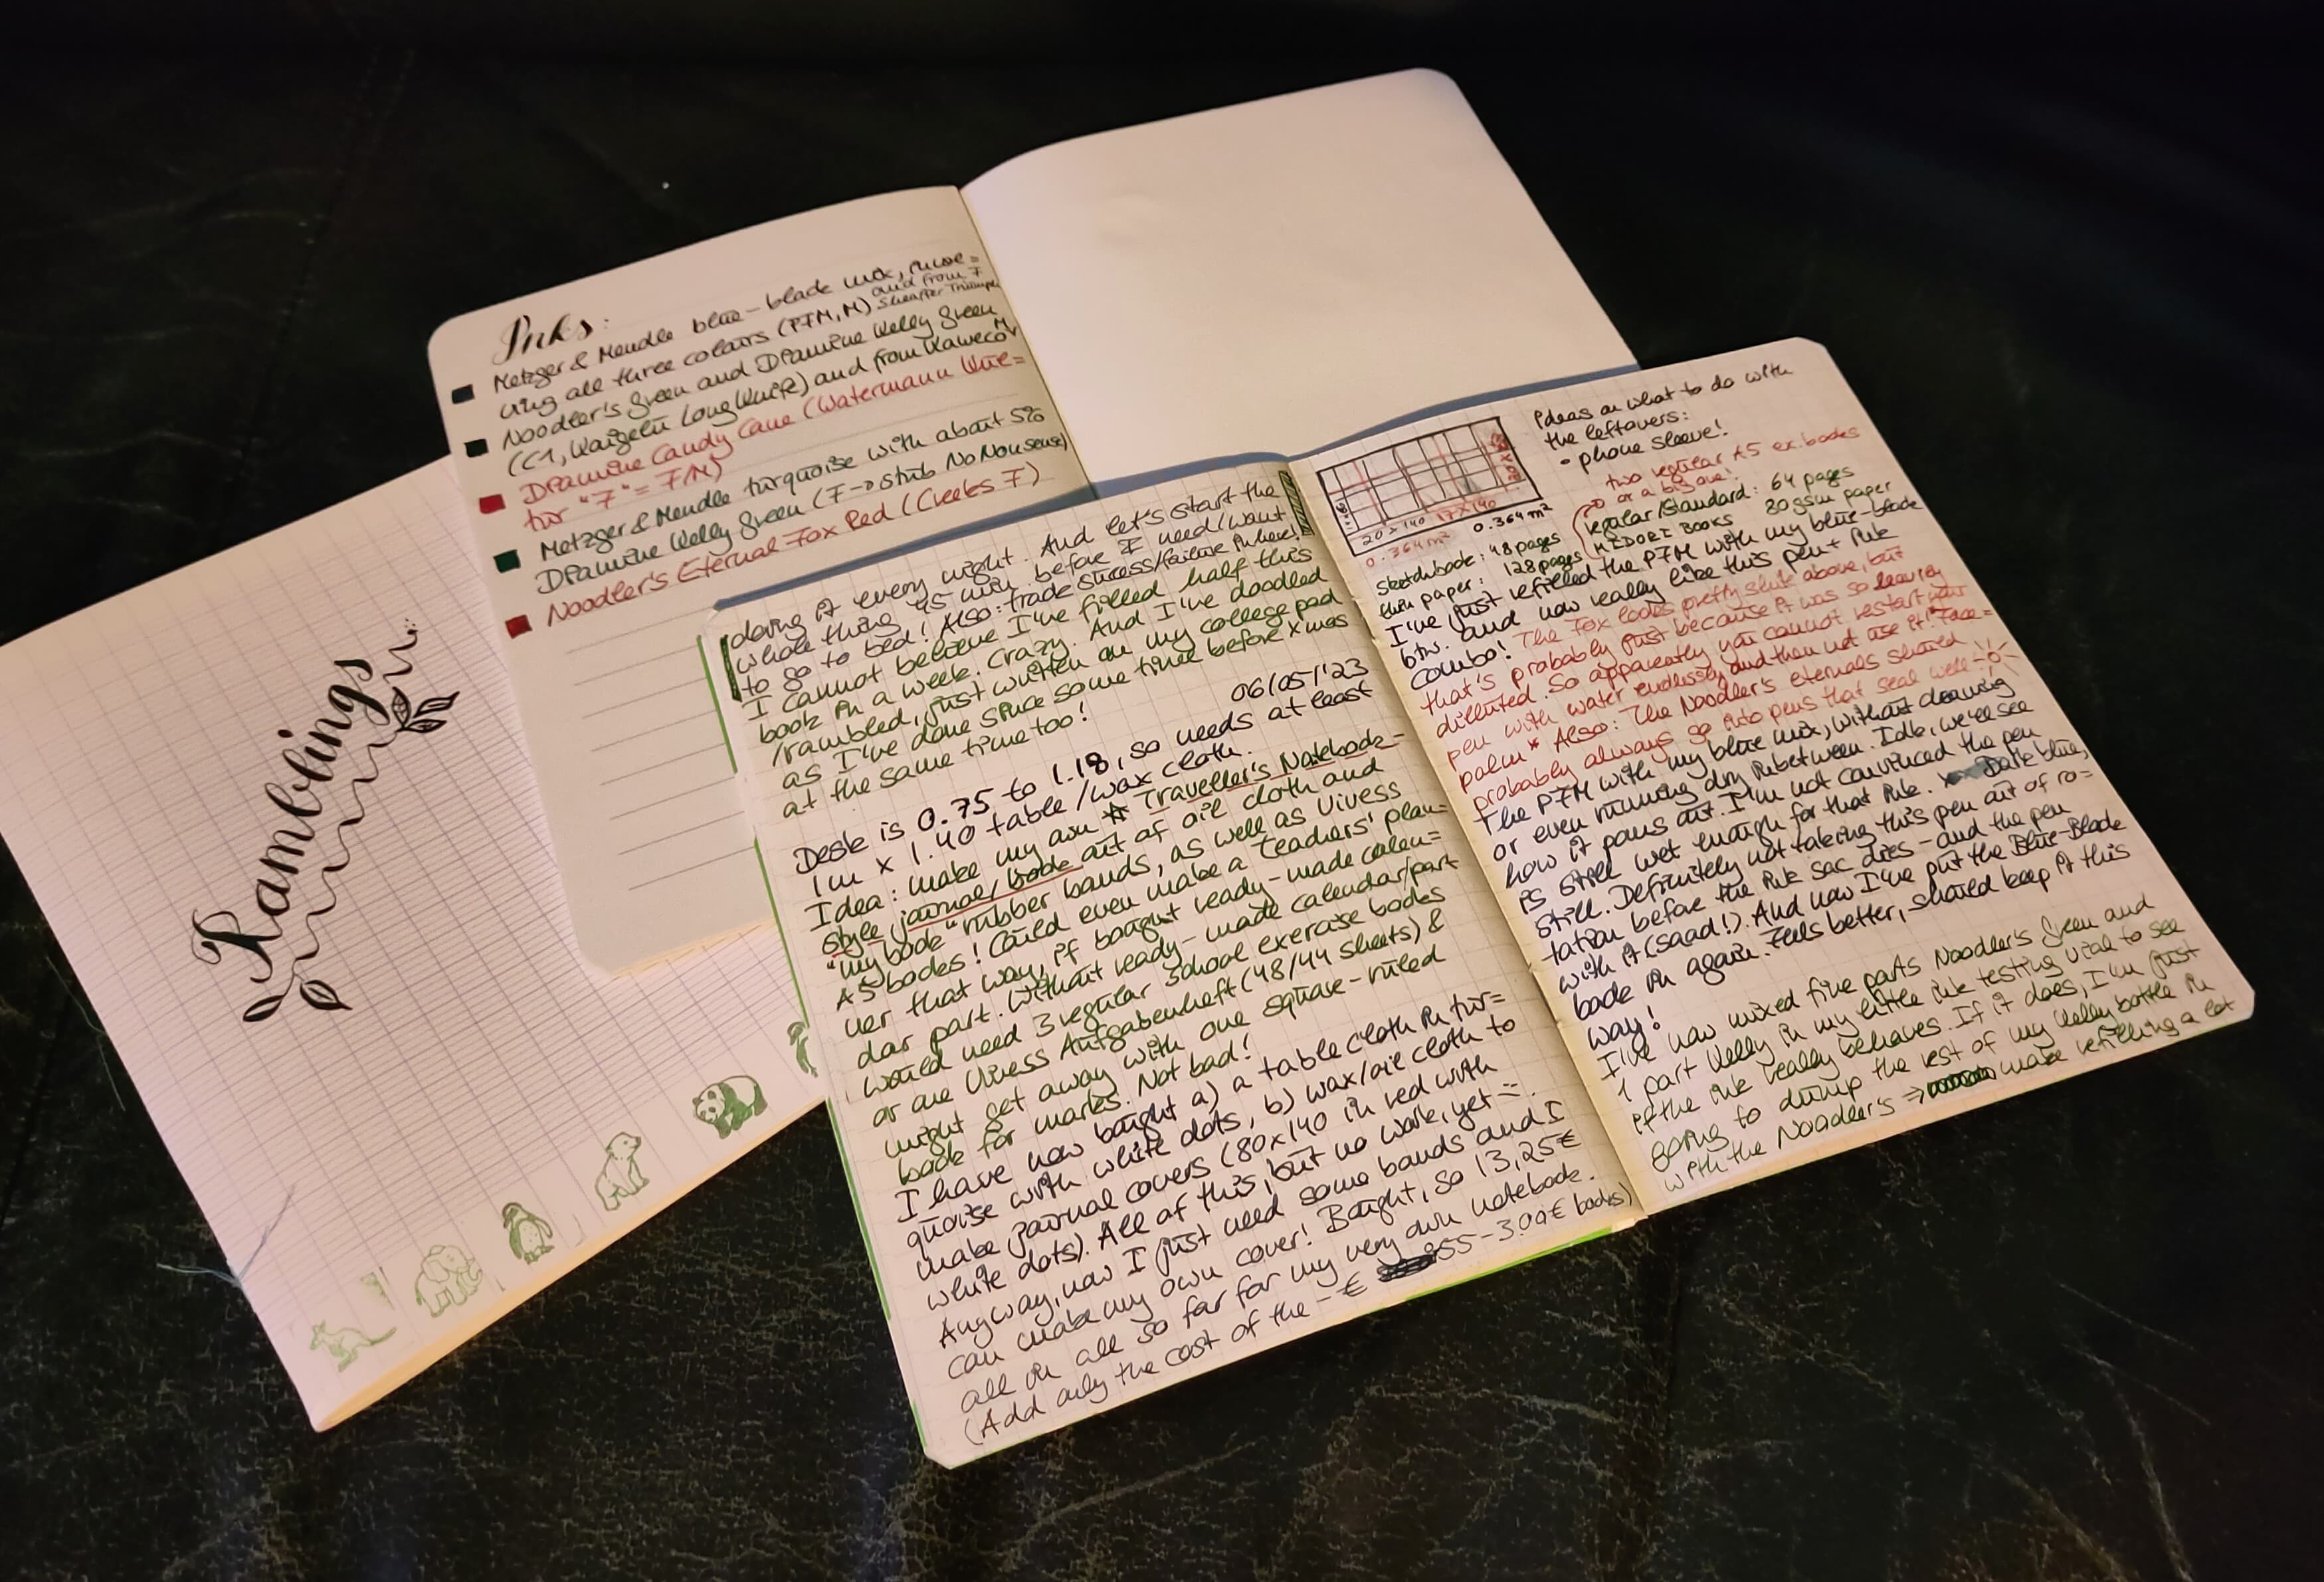 Ramblings
Inks:
Metzger & Mendle blue-black mix, inwe=
ning all three colours (PFM, M) and from F
Sheaffer Triumph
Noodler's Green and Diamine Kelly Green
(C1, Kaigelu Long Knife) and from Kaweco M
Diamine Candy Cane (Watermann Kue=
tur "F" = F/M)
Metzger & Mendle turquoise with about 5%
Diamine Kelly Green (F → stub No Nonsense)
Noodler's Eternal Fox Red (Creeks F)
doing it every night. And let's start the
whole thing 45 min before I need/want
to go to bed! Also: trade stress/failure in here!
I cannot believe I've filled half this
book in a week. Crazy. And I've doodled
/rambled, just written on my college pad
as I've done since some time before xmas
at the same time too!
06/05/'23
Desk is 0.75 to 1.18, so needs at least
1m x 1.40 table/wax cloth.
Idea: make my own Traveller's Notebook-
style journal/book out of oil cloth and
"mybook" rubber bands, as well as Vivess
A5 books! Could even make a teachers' plan=
ner that way, if bought ready-made calen=
dar part. Without ready-made calendar/part
would need 3 regular school exercise books
or one Vivess Aufgabenheft (48/44 sheets) &
might get away with one square-ruled
book for marks. Not bad!
I have now bought a) a table cloth in tur=
quoise with white dots, b) wax/oil cloth to
make journal covers (80x140 in red with
white dots). All of this, but no work, yet =.
Anyway, now I just need some bands and I
can make my own cover! Bought, so 13,25€
all in all so far for my very own notebook.
(Add only the cost of the - € 55-3.00€ books)
20 x 140 17x140
0.364m² 0.364m²
Ideas on what to do with
the leftovers:
• phone sleeve!
two regular A5 ex. books
or a big one!
Sketchbook: 48 pages
thin paper: 128 pages
regular/Standard: 64 pages
MIDORI BOOKS 80gsm paper
I've just refilled the PFM with my blue-black
btw. and now really like this pen + ink
combo! The Fox looks pretty shite above, but
that's probably just because it was so heavily
dilluted. So apparently you cannot restart your
pen with water endlessly and then not use it! *Face=
palm* Also: The Noodler's eternals should
probably always go into pens that seal well
The PFM with my blue mix, without drawing
or even running dry inbetween. Idk, we'll see
how it pans out. I'm not convinced the pen
is still wet enough for that ink. Dark blue,
still. Definitely not taking this pen out of ro=
tation before the ink sac dies - and the pen
with it (saad!). And now I've put the Blue-Black
back in again. Feels better, should keep it this
way!
I've now mixed five parts Noodler's Green and
1 part Kelly in my little ink testing vial to see
if the ink really behaves. If it does, I'm just
going to dump the rest of my Kelly bottle in
with the Noodler's → make refilling a lot